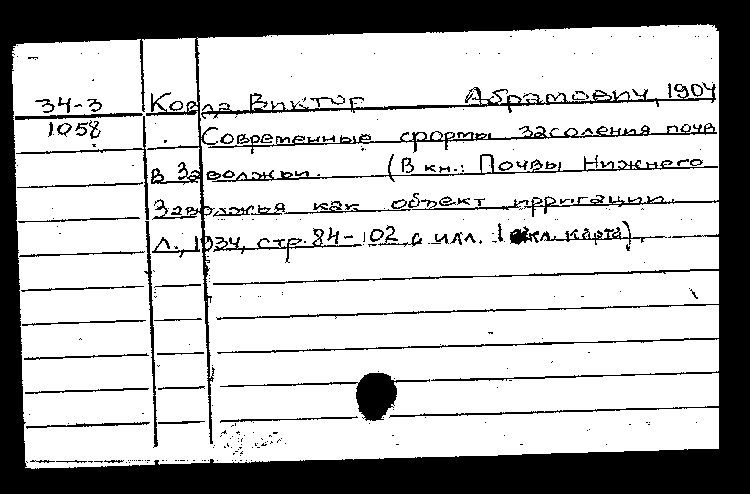 34-3 Ковда, Виктор Абрамович, 1904
1058 Современные формы засоления почв
в Заволжьи. (В кн.: Почвы Нижнего
Заволжья как объект ирригации.
Л., 1934, стр. 84-102 с илл. 1 вкл. карта).